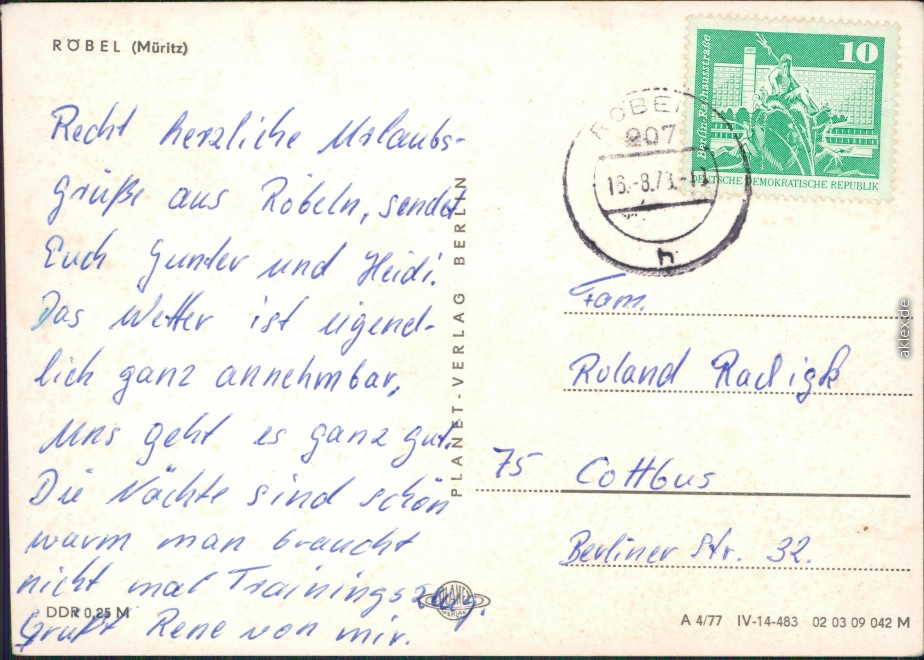 RÖBEL (Müritz)
Recht herzliche Urlaubs-
grüße aus Röbeln, sendet
Euch Gunter und Heidi.
Das Wetter ist eigend-
lich ganz annehmbar,
uns geht es ganz gut.
Die Nächte sind schön
warm man braucht
nicht mal Trainingszeug.
Grüßt Rene von mir.
DDR 0,25 M
PLANET-VERLAG BERLIN
PLANET
VERLAG
10
Berlin Rathausstraße
DEUTSCHE DEMOKRATISCHE REPUBLIK
RÖBEL
207
16.-8.7
h
Fam.
Roland Radigk
75 Cottbus
Berliner Str. 32.
A 4/77 IV-14-483 02 03 09 042 M
aklex.de